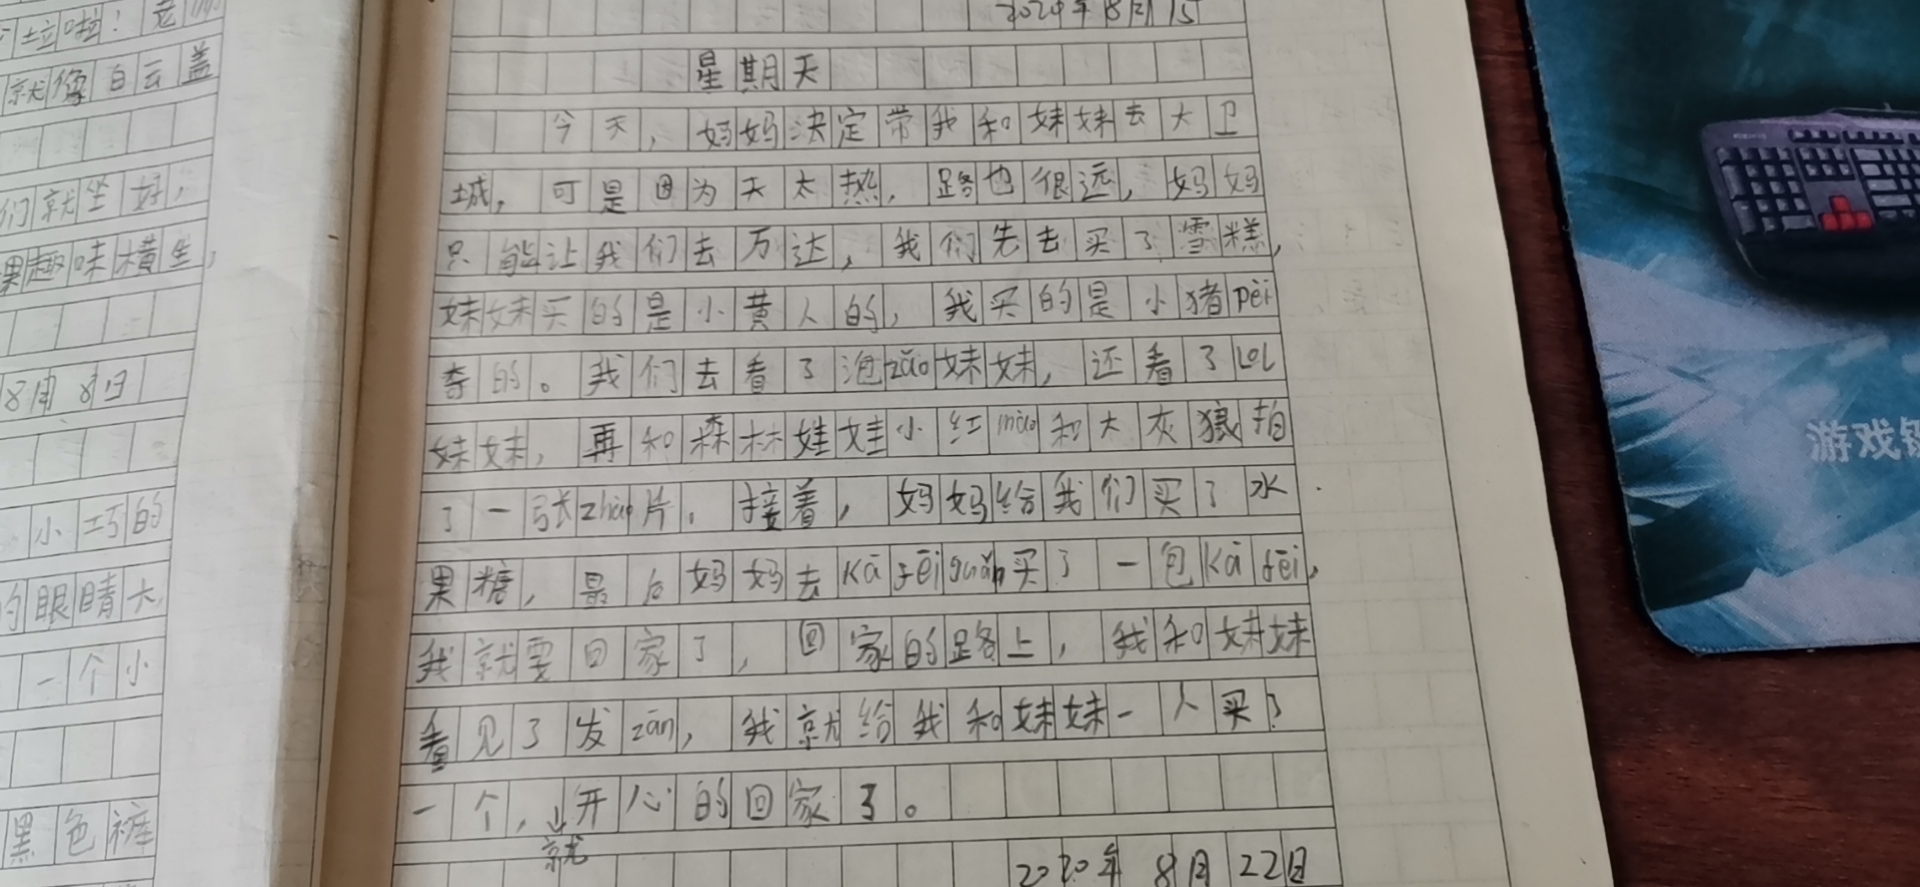 垃啦！老师
就像白云盖
们就坐好，
果趣味横生，
8月8日
小巧的
的眼睛大，
一个小
黑色裤
2020年8月15
星期天
今天，妈妈决定带我和妹妹去大卫
城，可是因为天太热，路也很远，妈妈
只能让我们去万达，我们先去买了雪糕，
妹妹买的是小黄人的，我买的是小猪pèi
奇的。我们去看了泡zǎo妹妹，还看了LOL
妹妹，再和森林娃娃小红mào和大灰狼拍
了一张zhào片。接着，妈妈给我们买了水
果糖，最后妈妈去kā fēi guǎn买了一包kā fēi，
我就要回家了，回家的路上，我和妹妹
看见了发zān，我就给我和妹妹一人买了
一个，就开心的回家了。
2020年8月22日
游戏